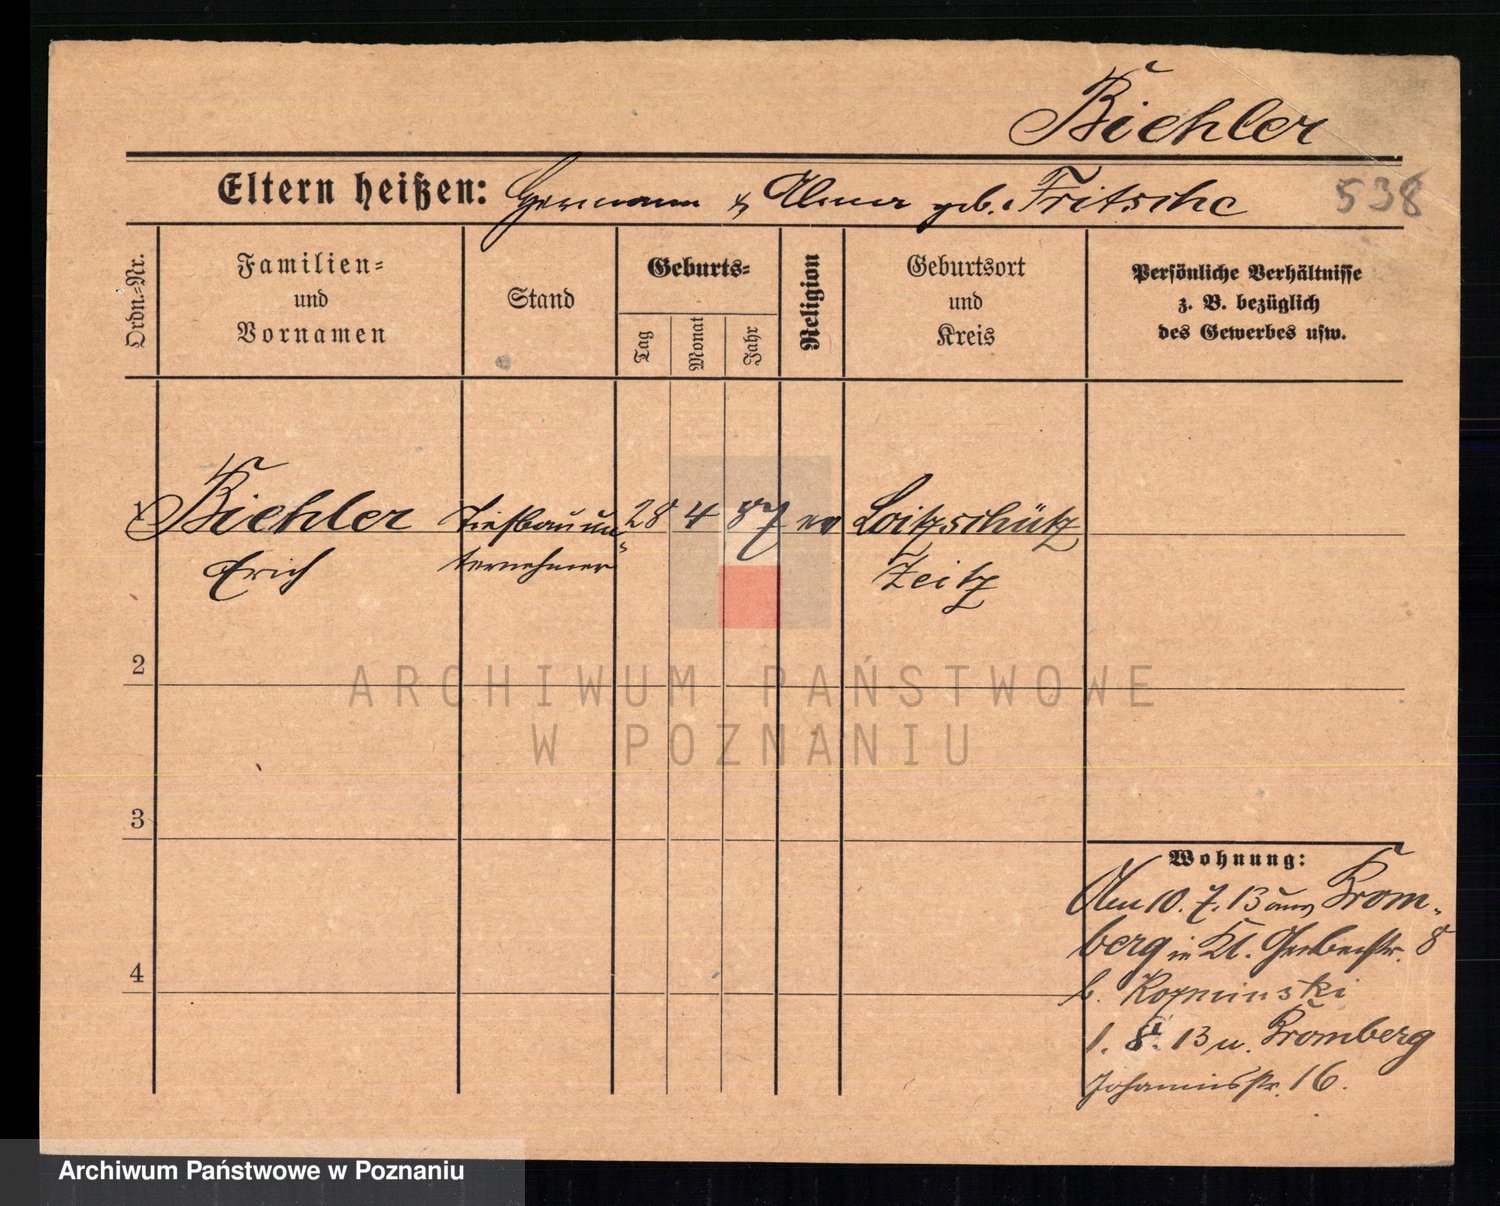 Biehler
Eltern heißen: Hermann & Alma geb. Fritsche
538
Ordn.-Nr.
Familien-
und
Vornamen
Stand
Geburts-
Tag
Monat
Jahr
Religion
Geburtsort
und
Kreis
Persönliche Verhältnisse
z. B. bezüglich
des Gewerbes usw.
1 Biehler Tiefbauun- 28 4 87 ev Loitzschütz
Erich ternehmer Zeitz
2
3
4
Wohnung:
Am 10. 7. 13 aus Brom-
berg in Kl. 8
b. Kozminski
1. 8. 13 n. Bromberg
Johannisstr. 16.
ARCHIWUM PAŃSTWOWE
W POZNANIU
Archiwum Państwowe w Poznaniu